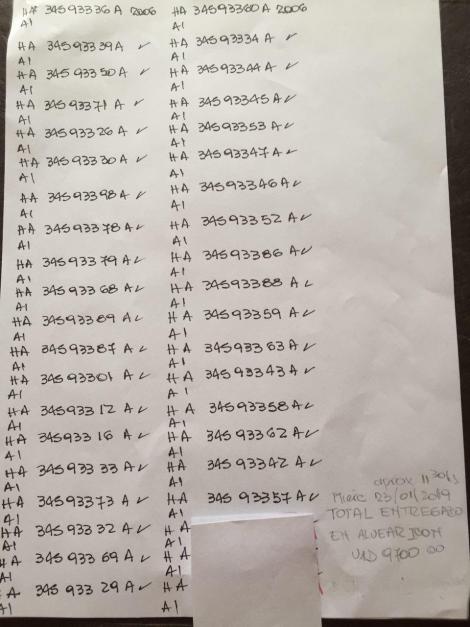 HA 34593336 A 2006
A1
HA 34593339 A ✓
A1
HA 34593350 A ✓
A1
HA 34593371 A ✓
A1
HA 34593326 A ✓
A1
HA 34593330 A ✓
A1
HA 34593398 A ✓
A1
HA 34593378 A ✓
A1
HA 34593379 A ✓
A1
HA 34593368 A ✓
A1
HA 34593389 A ✓
A1
HA 34593387 A ✓
A1
HA 34593301 A ✓
A1
HA 34593312 A ✓
A1
HA 34593316 A ✓
A1
HA 34593333 A ✓
A1
HA 34593373 A ✓
A1
HA 34593332 A ✓
A1
HA 34593369 A ✓
A1
HA 34593329 A ✓
A1
HA 34593360 A 2006
A1
HA 3459334 A ✓
A1
HA 34593344 A ✓
A1
HA 34593345 A ✓
A1
HA 34593353 A ✓
A1
HA 34593347 A ✓
A1
HA 34593346 A ✓
A1
HA 34593352 A ✓
A1
HA 34593386 A ✓
A1
HA 34593388 A ✓
A1
HA 34593359 A ✓
A1
HA 34593363 A ✓
A1
HA 34593343 A ✓
A1
HA 34593358 A ✓
A1
HA 34593362 A ✓
A1
HA 34593342 A ✓
A1
HA 34593357 A ✓
A1
HA
A1
HA
A1
HA
A1
aprox 11 30hs
Mierc 23/01/2019
TOTAL ENTREGADO
EN ALVEAR ICON
U$D 9700 00